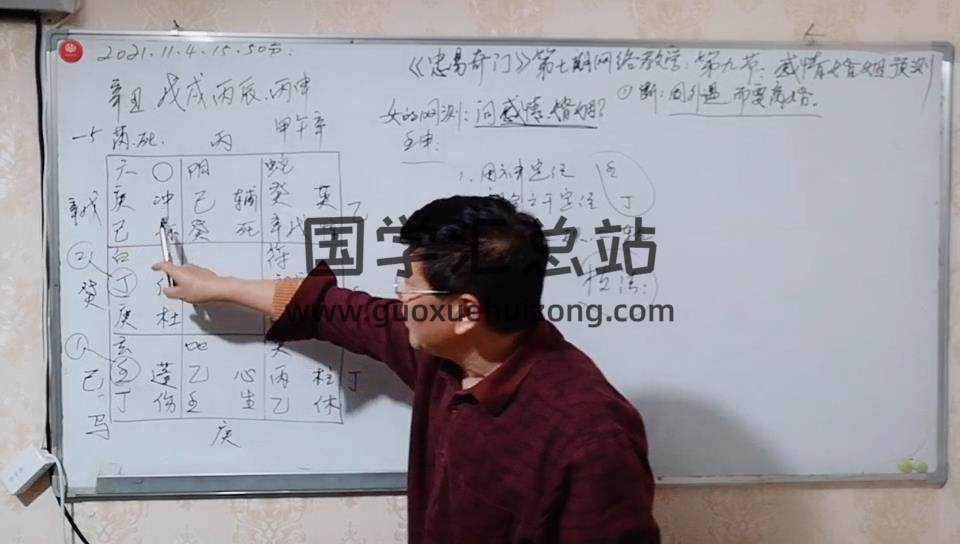 2021.11.4.15.50分:
《忠易奇门》第七期网络教学:第九节:感情婚姻预测
辛丑 戊戌 丙辰 丙申
①断:因外遇 而要离婚.
女的网测:问感情婚姻?
甲午辛
丙
壬申:
天 ○ 阴 蛇
1.用 定位 壬
庚 冲 己 辅 癸 英
干定位 丁
己 癸 死 辛戊
乙
白 符
癸 丁
庚 杜
玄 地
己 壬 蓬 乙 心 丙 柱 丁
马 丁 伤 壬 生 乙 休
庚
国学汇总站
www.guoxuehuizong.com